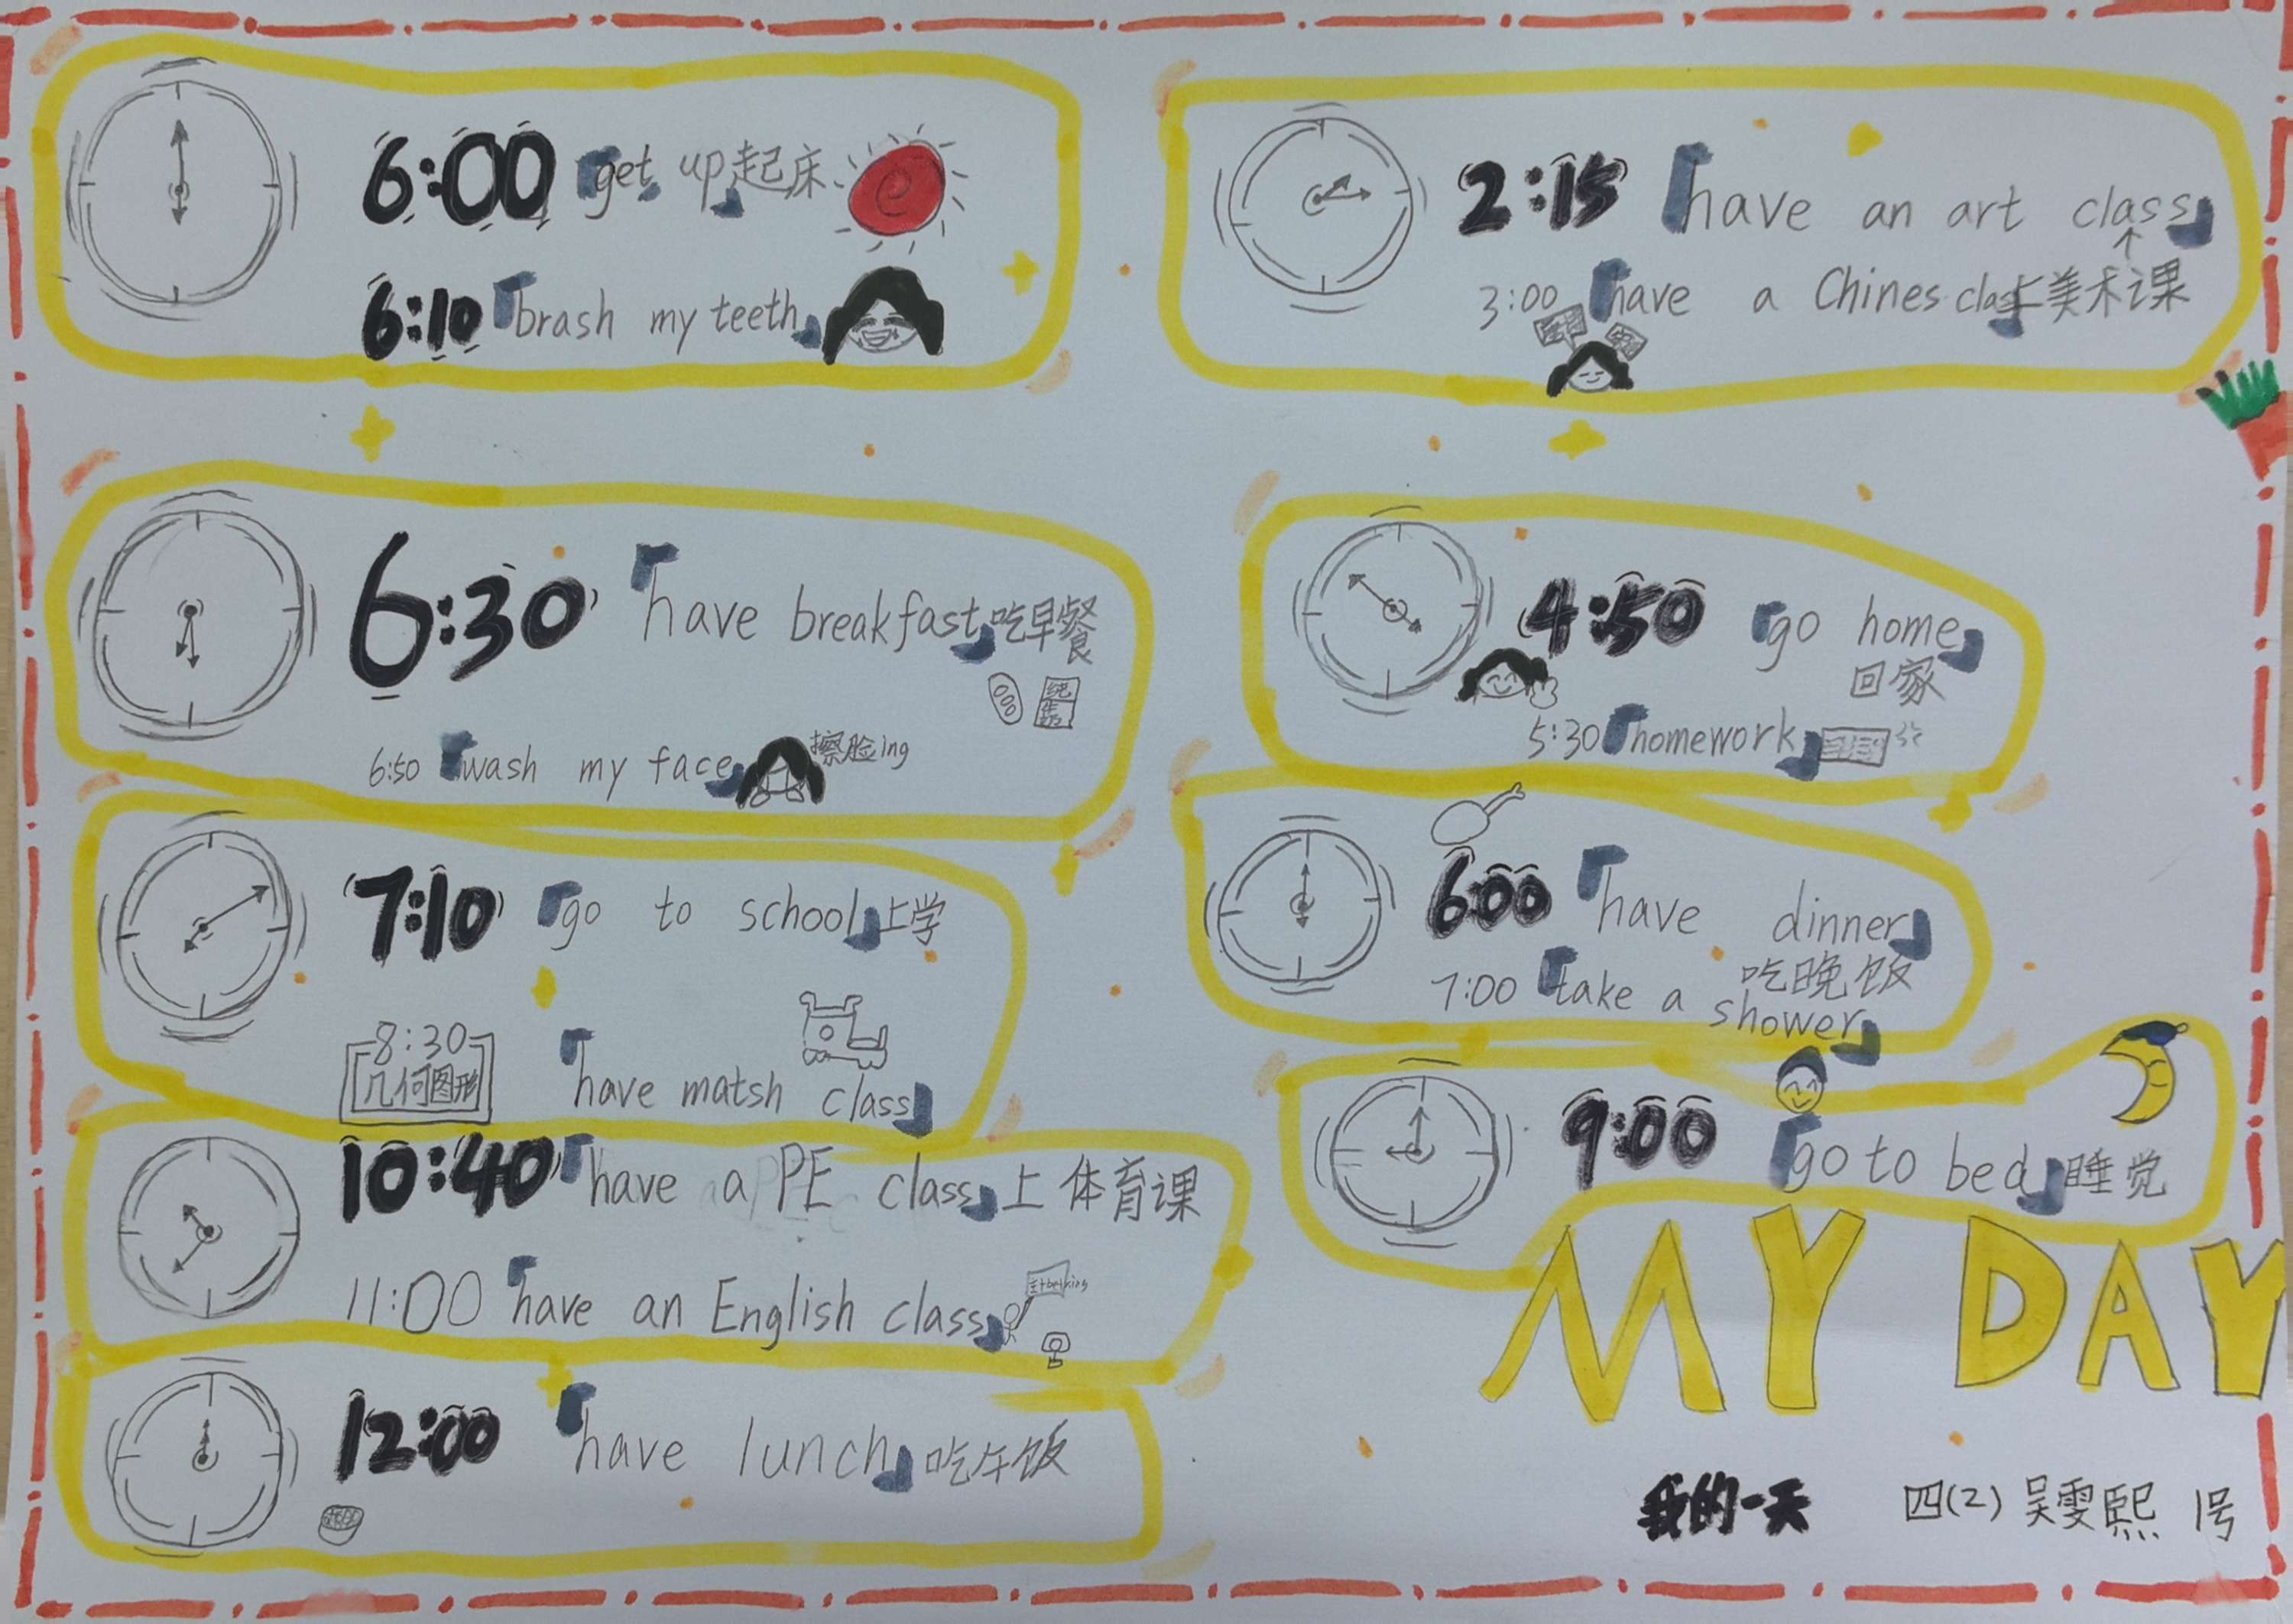 6:00 「get up」起床
e
6:10「brash my teeth」
6:30 「have breakfast」吃早餐
纯牛奶
6:50「wash my face」擦脸ing
7:10 「go to school」上学
8:30 「have matsh class」
几何图形
10:40「have a PE class」上体育课
11:00「have an English class」
12:00 「have lunch」吃午饭
2:15 「have an art class」
3:00 「have a Chines class」
上美术课
4:50 「go home」
回家
5:30「homework」
6:00 「have dinner」
吃晚饭
7:00「take a shower」
9:00 「go to bed」睡觉
MY DAY
我的一天 四(2) 吴雯熙 1号